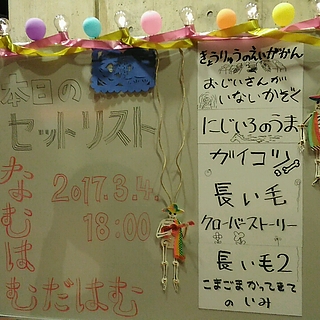 本日の
セットリスト
2017.3.4.
18:00
なむは
むだはむ
きょうりゅうのえいがかん
おじいさんが
いないかぞく
にじいろのうま
ガイコツ
長い毛
クローバーストーリー
長い毛2
こまごまかってきて
のいみ